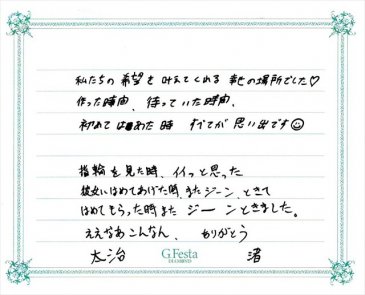 私たちの希望を叶えてくれる 幸せの場所でした♡
作った時間、待っていた時間、
初めてはめた時 すべてが思い出です☺
指輪を見た時、イイっと思った
彼女にはめてあげた時、またジーンときて
はめてもらった時また ジーンときました。
ええなあこんなん、ありがとう
太治 渚
G.Festa
DIAMOND